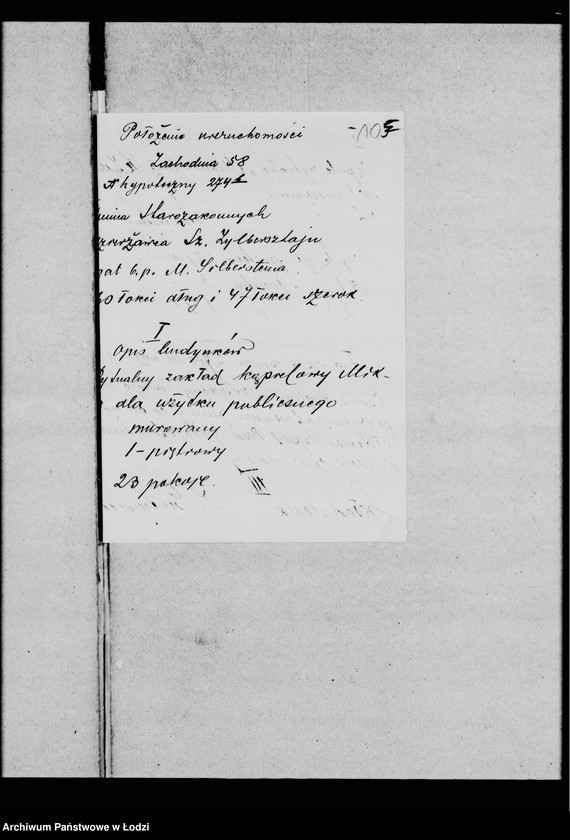 Położenie nieruchomości
Zachodnia 58
№ hypoteczny 274
mina Starozakonnych
Sz. Zylbersztajn
b. p. M. Silbersteina
łokci dług i 47 łokci szerok
I
opis budynków
rytualny zakład kąpielowy Mik-
dla użytku publicznego
murowany
1-piętrowy
23 pokoje.
III
Archiwum Państwowe w Łodzi